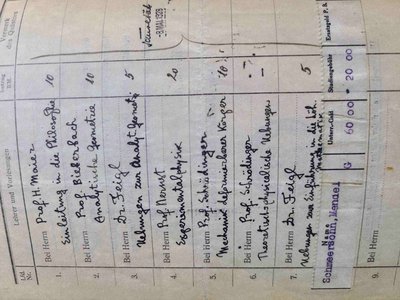 Lfd. Nr.
Lehrer und Vorlesungen
Betrag RM
Vermerk des Quästors
1. Bei Herrn Prof. H. Maier 10
Einleitung in die Philosophie
2. Bei Herrn Prof Bieberbach 10
Analytische Geometrie
3. Bei Herrn Dr. Feigl 5
Uebungen zur Analyt Geometrie
-8 MAI 1928
4. Bei Herrn Prof Nernst 20
Experimentalphysik
5. Bei Herrn Prof. Schrödinger 10
Mechanik deformierbarer Körper
6. Bei Herrn Prof Schrödinger
Theoretischphysicalische Uebungen
7. Bei Herrn Dr. Feigl 5
Uebungen zur Einführung in die höh. Mathematik
Name Unterr.-Geld Studiengebühr Ersatzgeld P. R.
Schneersohn, Mendel G 60/00 * 20 00
9. Bei Herrn